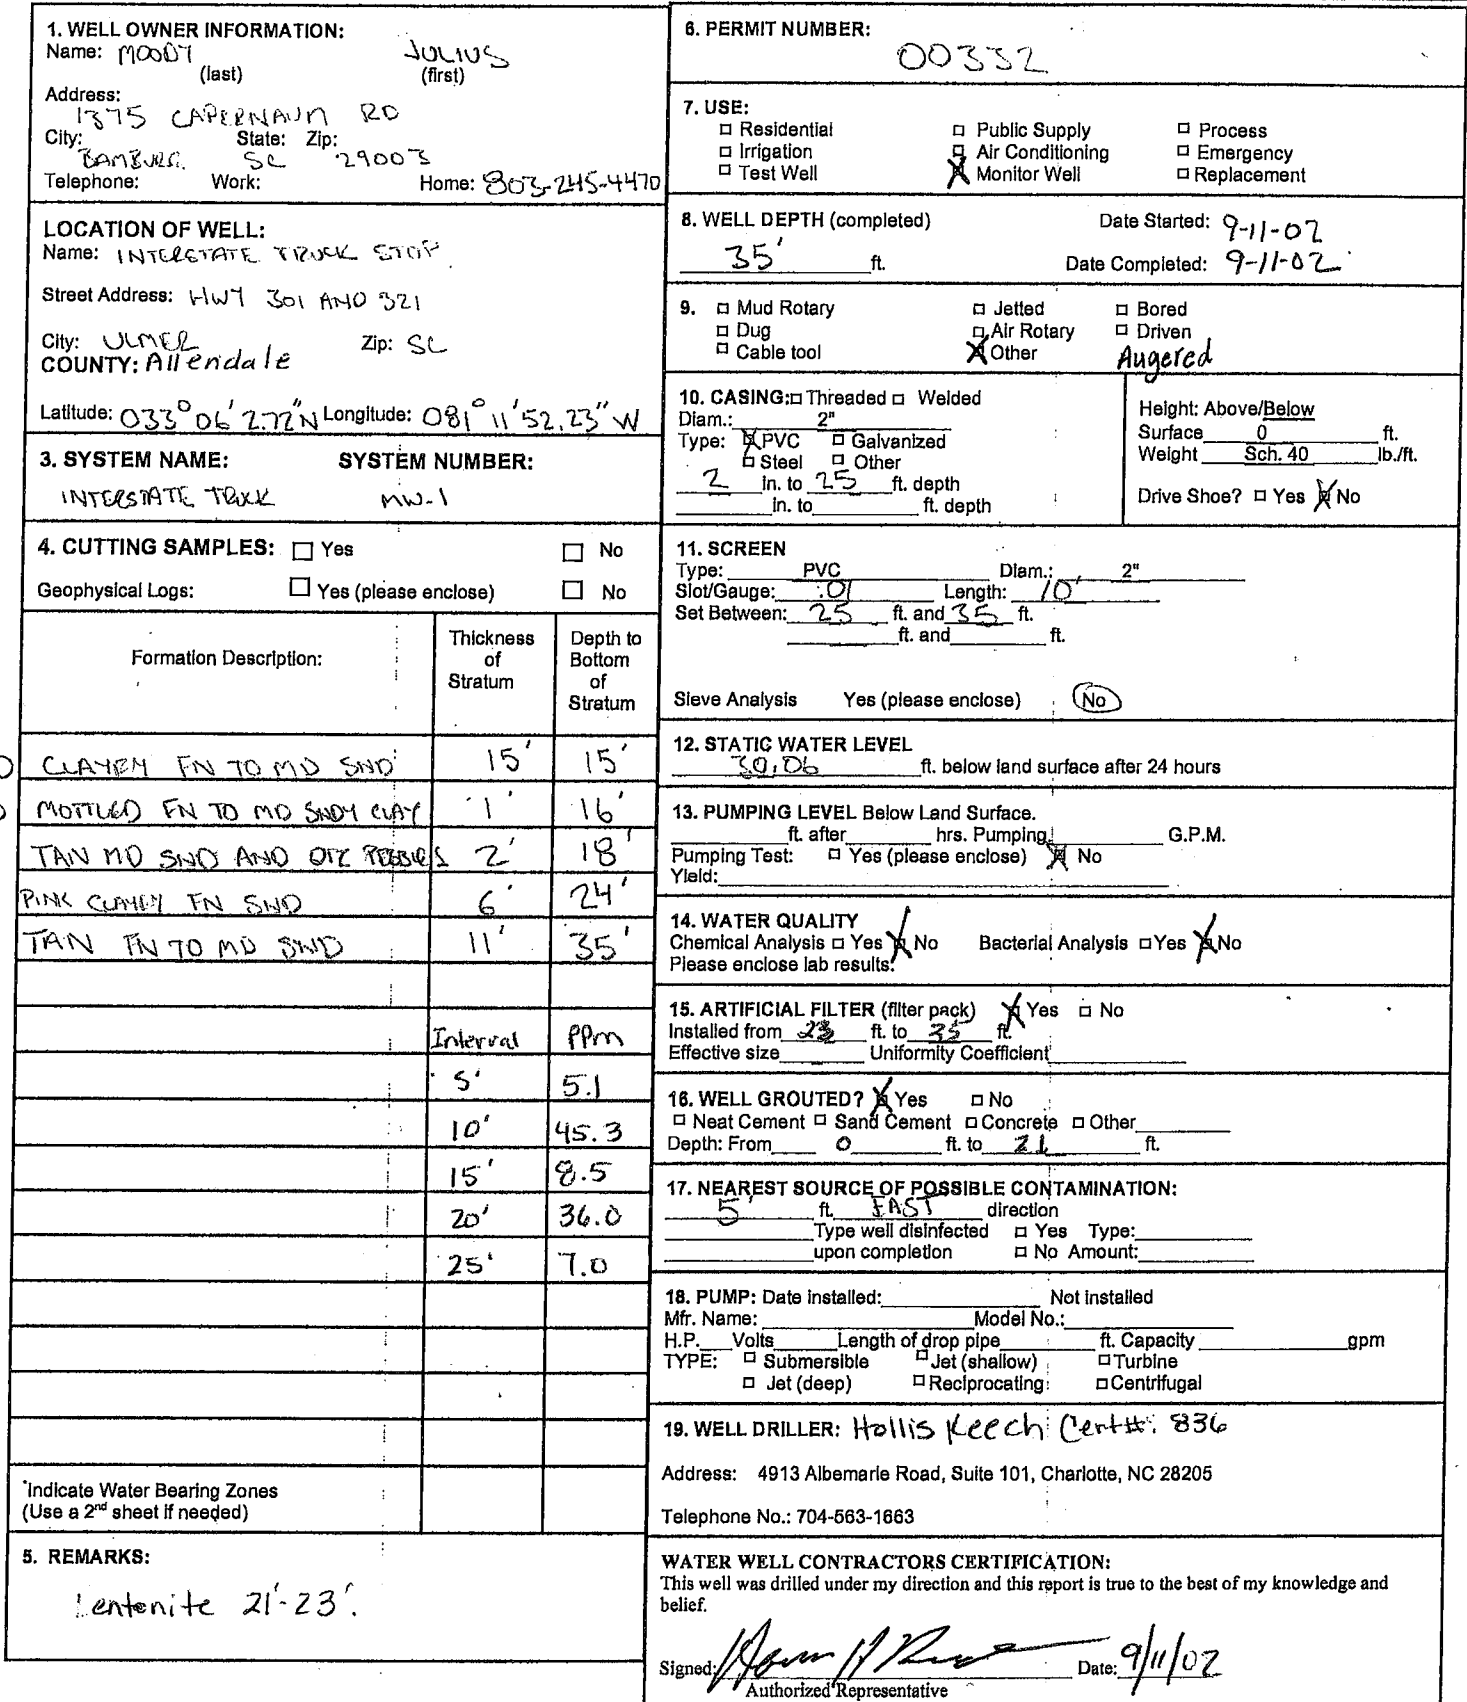 1. WELL OWNER INFORMATION:
Name: MOODY JULIUS
(last) (first)
Address:
1375 CAPERNAUM RD
City: State: Zip:
BAMBURG SC 29003
Telephone: Work: Home: 803-245-4470
LOCATION OF WELL:
Name: INTERSTATE TRUCK STOP
Street Address: HWY 301 AND 321
City: ULMER Zip: SC
COUNTY: Allendale
Latitude: 033° 06' 2.72"N Longitude: 081° 11' 52.23" W
3. SYSTEM NAME: SYSTEM NUMBER:
INTERSTATE TRUCK MW-1
4. CUTTING SAMPLES: □ Yes □ No
Geophysical Logs: □ Yes (please enclose) □ No
Formation Description: Thickness of Stratum Depth to Bottom of Stratum
CLAYEY FN TO MD SND 15' 15'
MOTTLED FN TO MD SNDY CLAY 1' 16'
TAN MD SND AND QTZ PEBBLES 2' 18'
PINK CLAYEY FN SND 6' 24'
TAN FN TO MD SND 11' 35'
Interval PPm
5' 5.1
10' 45.3
15' 8.5
20' 36.0
25' 7.0
*Indicate Water Bearing Zones
(Use a 2nd sheet if needed)
5. REMARKS:
entonite 21'-23'.
6. PERMIT NUMBER:
00332
7. USE:
□ Residential □ Public Supply □ Process
□ Irrigation □ Air Conditioning □ Emergency
□ Test Well ☒ Monitor Well □ Replacement
8. WELL DEPTH (completed) Date Started: 9-11-02
35' ft. Date Completed: 9-11-02
9. □ Mud Rotary □ Jetted □ Bored
□ Dug □ Air Rotary □ Driven
□ Cable tool ☒ Other Augered
10. CASING: □ Threaded □ Welded
Diam.: 2"
Type: ☒ PVC □ Galvanized
□ Steel □ Other
2 in. to 25 ft. depth
in. to ft. depth
Height: Above/Below
Surface 0 ft.
Weight Sch. 40 lb./ft.
Drive Shoe? □ Yes ☒ No
11. SCREEN
Type: PVC Diam.: 2"
Slot/Gauge: .01 Length: 10'
Set Between: 25 ft. and 35 ft.
ft. and ft.
Sieve Analysis Yes (please enclose) No
12. STATIC WATER LEVEL
30.06 ft. below land surface after 24 hours
13. PUMPING LEVEL Below Land Surface.
ft. after hrs. Pumping G.P.M.
Pumping Test: □ Yes (please enclose) ☒ No
Yield:
14. WATER QUALITY
Chemical Analysis □ Yes ☒ No Bacterial Analysis □ Yes ☒ No
Please enclose lab results.
15. ARTIFICIAL FILTER (filter pack) ☒ Yes □ No
Installed from 23 ft. to 35 ft.
Effective size Uniformity Coefficient
16. WELL GROUTED? ☒ Yes □ No
□ Neat Cement □ Sand Cement □ Concrete □ Other
Depth: From 0 ft. to 21 ft.
17. NEAREST SOURCE OF POSSIBLE CONTAMINATION:
5' ft. EAST direction
Type well disinfected □ Yes Type:
upon completion □ No Amount:
18. PUMP: Date installed: Not installed
Mfr. Name: Model No.:
H.P. Volts Length of drop pipe ft. Capacity gpm
TYPE: □ Submersible □ Jet (shallow) □ Turbine
□ Jet (deep) □ Reciprocating □ Centrifugal
19. WELL DRILLER: Hollis Keech Cert#: 836
Address: 4913 Albemarle Road, Suite 101, Charlotte, NC 28205
Telephone No.: 704-563-1663
WATER WELL CONTRACTORS CERTIFICATION:
This well was drilled under my direction and this report is true to the best of my knowledge and
belief.
Signed: Date: 9/11/02
Authorized Representative